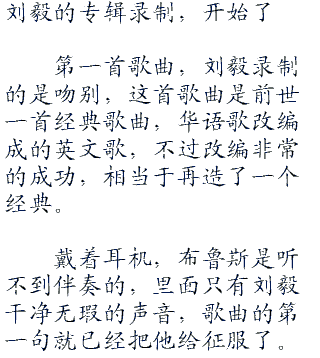 刘毅的专辑录制，开始了
第一首歌曲，刘毅录制
的是吻别，这首歌曲是前世
一首经典歌曲，华语歌改编
成的英文歌，不过改编非常
的成功，相当于再造了一个
经典。
戴着耳机，布鲁斯是听
不到伴奏的，里面只有刘毅
干净无瑕的声音，歌曲的第
一句就已经把他给征服了。